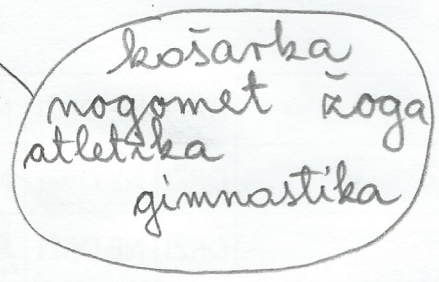 košarka
nogomet žoga
atletika
gimnastika